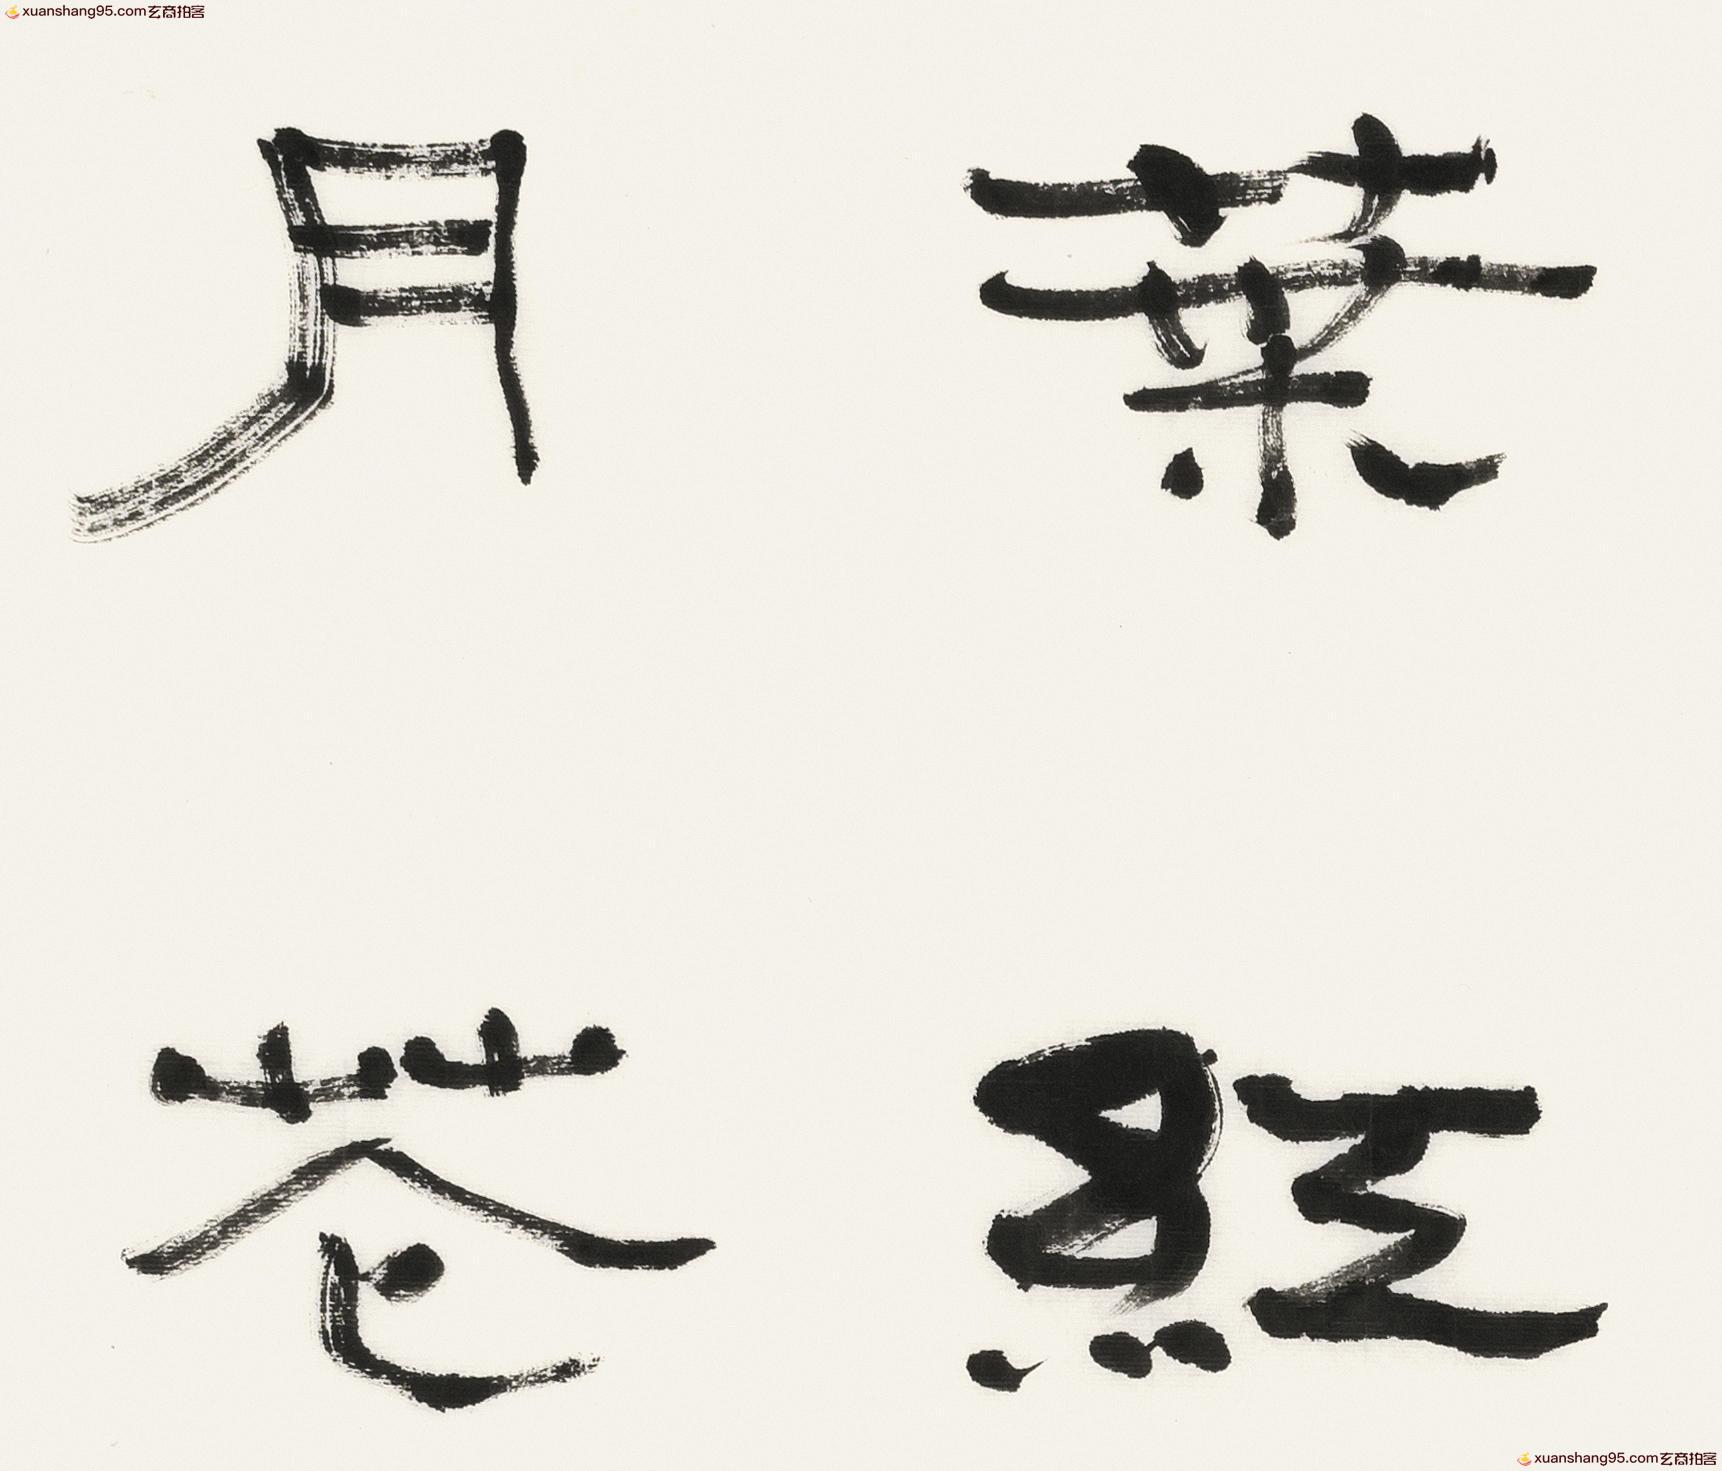 xuanshang95.com玄商拍客
葉
紅
月
花
xuanshang95.com玄商拍客